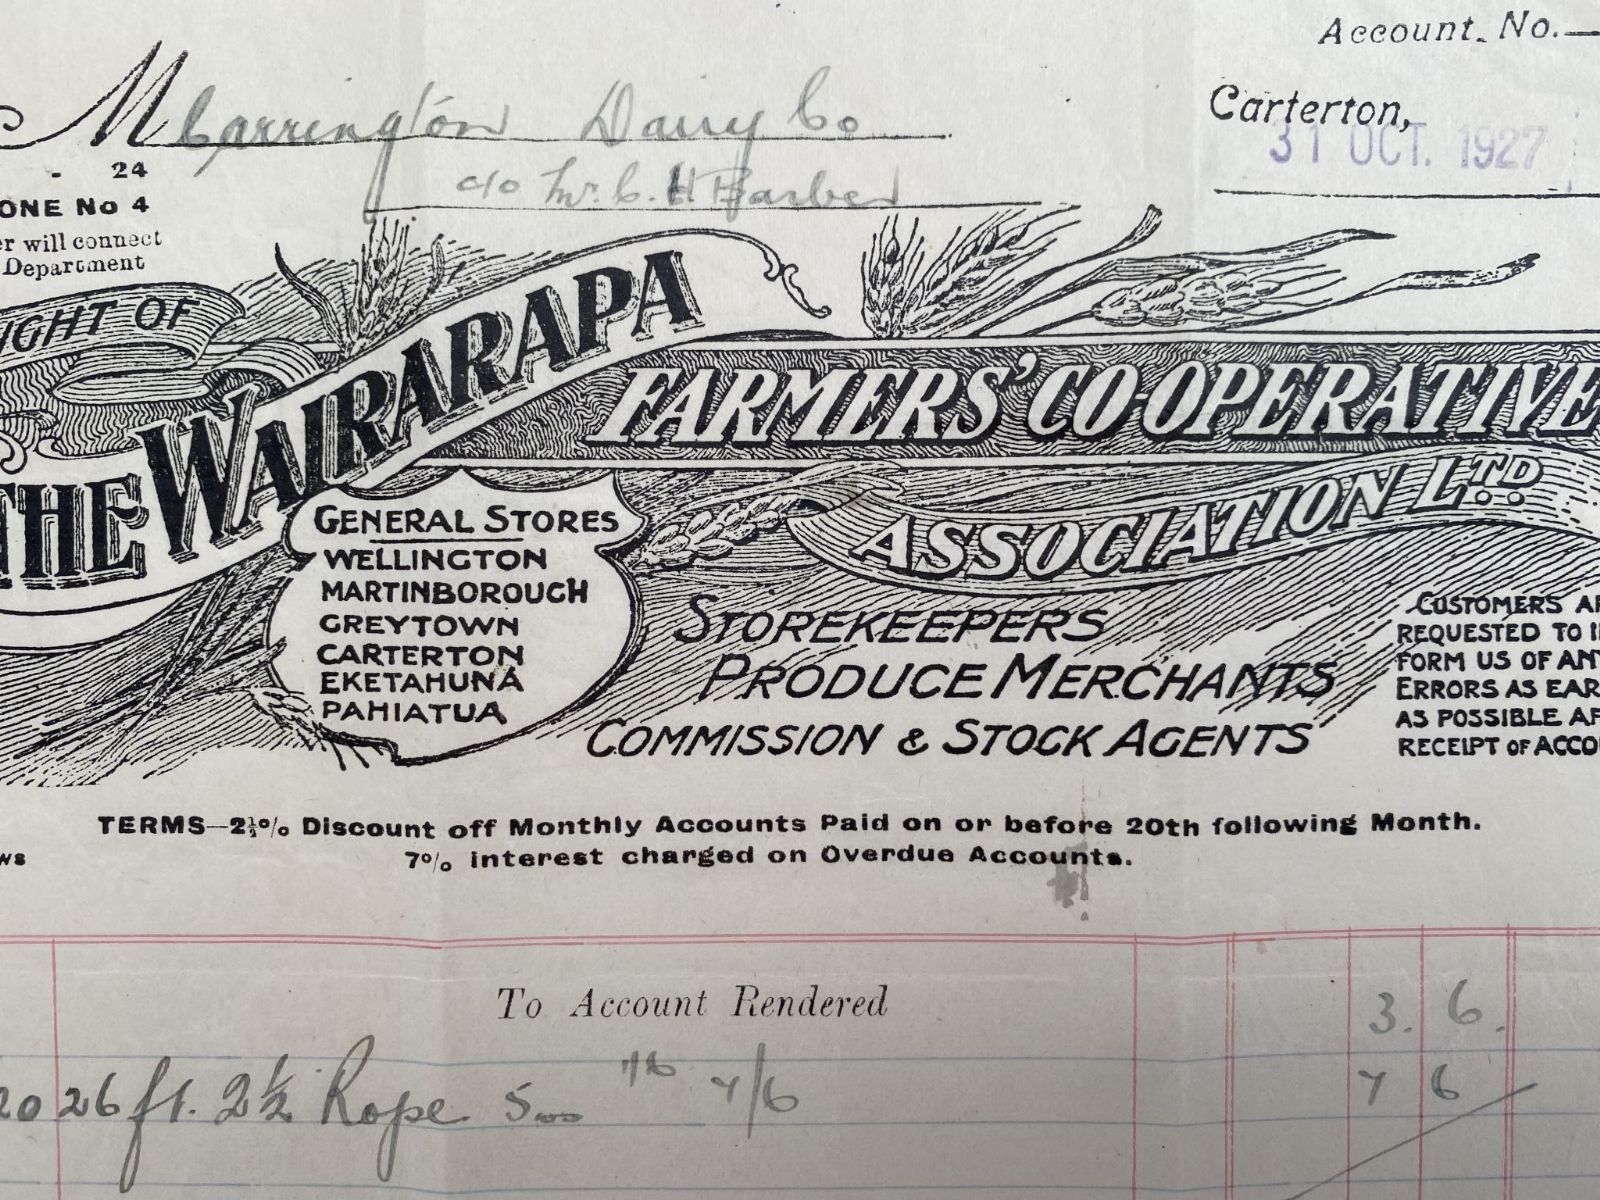 Account. No.
M Carrington Dairy Co
Carterton,
31 OCT. 1927
- 24
c/o Mr. C. H Barber
ONE No 4
er will connect
Department
IGHT OF
THE WAIRARAPA
FARMERS' CO-OPERATIVE
ASSOCIATION LTD
GENERAL STORES
WELLINGTON
MARTINBOROUGH
GREYTOWN
CARTERTON
EKETAHUNA
PAHIATUA
STOREKEEPERS
PRODUCE MERCHANTS
COMMISSION & STOCK AGENTS
CUSTOMERS AR
REQUESTED TO IN
FORM US OF ANY
ERRORS AS EAR
AS POSSIBLE AF
RECEIPT OF ACCOU
TERMS—2½% Discount off Monthly Accounts Paid on or before 20th following Month.
ws
7% interest charged on Overdue Accounts.
To Account Rendered 3. 6.
20 26 ft. 2½ Rope 7/6 7 6